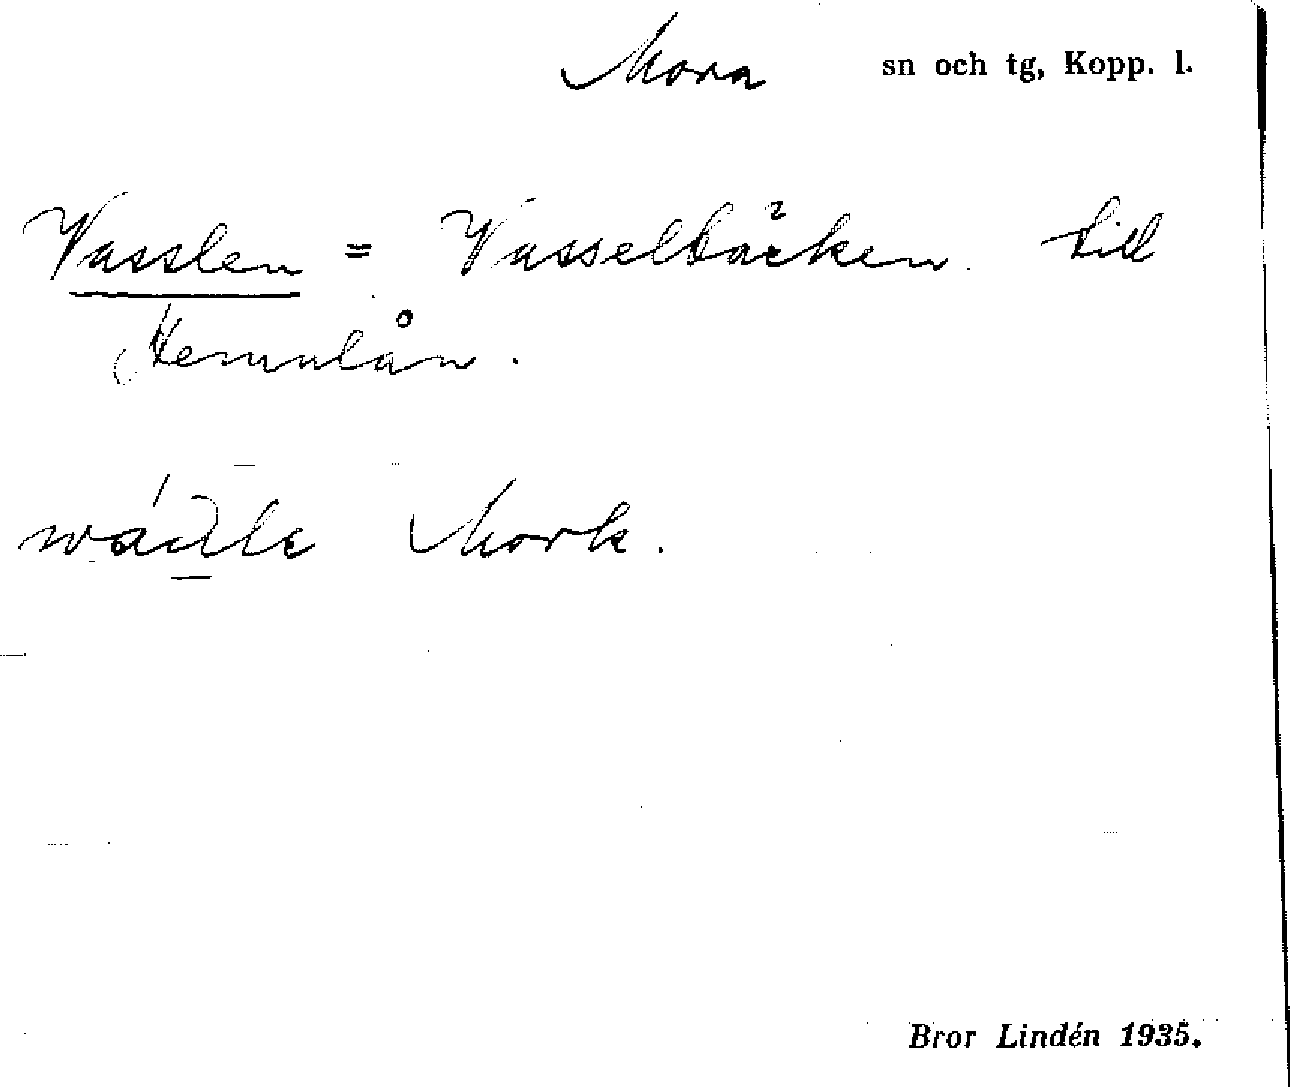 Mora sn och tg, Kopp. l.
Vasslen = Vasselbäcken till
Hemulån.
Mork.
Bror Lindén 1935.